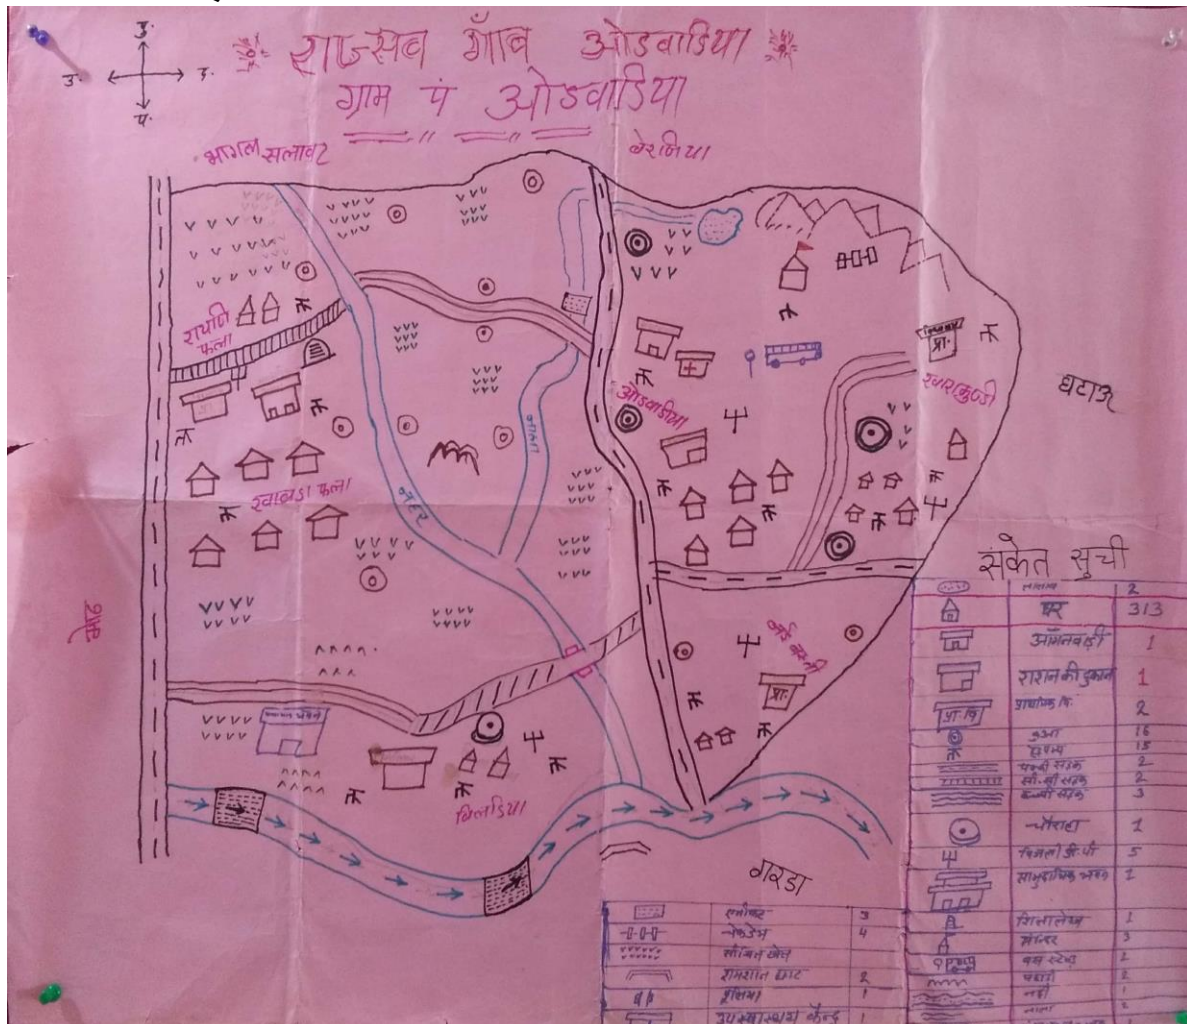 उ.
उ.
द.
प.
राजस्व गाँव ओडवाडिया
ग्राम पं ओडवाडिया
भागल सलावट
बेरनिया
रायणि
फला
प्रा.
खाराकुण्डी
घटाऊ
ओडवाडिया
नाला
खाखडा फला
नहर
मोढ
प्रा.
बिलडिया
गरडा
संकेत सुची
तालाब 2
घर 313
आँगनवाड़ी 1
राशन की दुकान 1
प्रा. वि. प्राथमिक वि. 2
कुआ 16
हैण्डपम्प 15
पक्की सड़क 2
सी.सी सड़क 2
कच्ची सड़क 3
चौराहा 1
बिजली डी.पी 5
सामुदायिक भवन 1
शिलालेख 1
मन्दिर 3
बस स्टेण्ड
पहाडी 2
नदी 1
नाला 2
एनीकट 3
चेकडेम 4
सींचित खेत
शमशान घाट 2
पुलिया 1
उपस्वास्थय केन्द्र 1